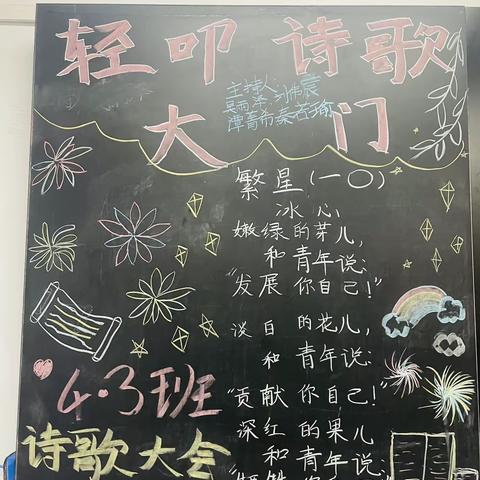 轻叩诗歌
大门
主持人
吴雨泽 刘伟宸
谭蓄希 秦若瑜
繁星(一〇)
冰心
嫩绿的芽儿,
和青年说:
"发展你自己!"
淡白的花儿,
和青年说:
"贡献你自己!"
深红的果儿
和青年说:
4.3班
诗歌大会